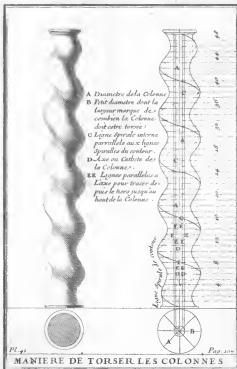 A Diametre de la Colonne
B Petit diametre dont la
largeur marque de
combien la Colonne
doit estre torse.
C Ligne Spirale interne
parallele aux lignes
Spirales du contour.
D Axe ou Cathete de
la Colonne.
EE Lignes paralleles a
l'Axe pour tracer de
puis le tiers jusqu'au
haut de la Colonne.
Ligne Spirale de contour
A
B
Pl. 41
Pag. 104
MANIERE DE TORSER LES COLONNES